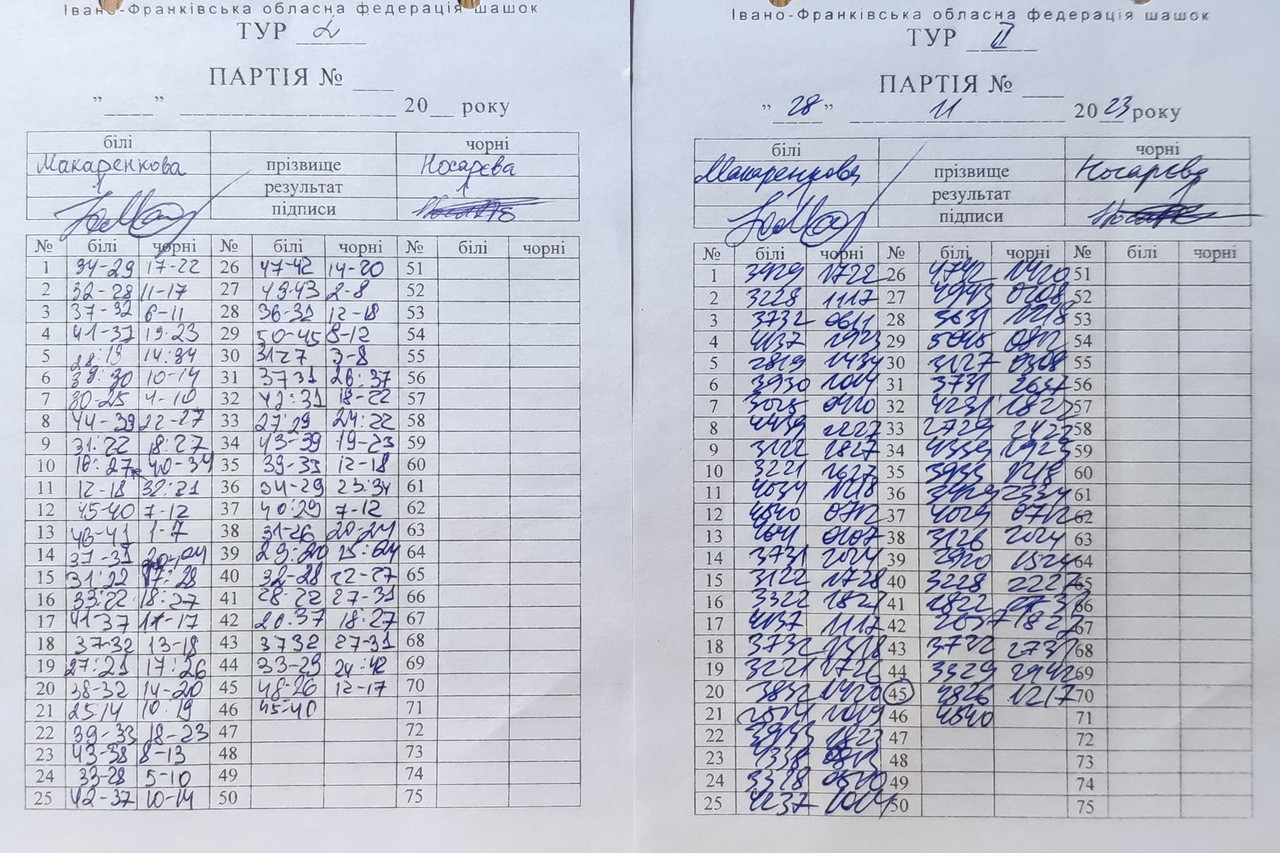 Івано-Франківська обласна федерація шашок
ТУР 2
ПАРТІЯ № ___
"____" ________________ 20__ року
білі чорні
Макаренкова прізвище Носарєва
результат
підписи
№ білі чорні № білі чорні № білі чорні
1 34-29 17-22 26 47-42 14-20 51
2 32-28 11-17 27 49-43 2-8 52
3 37-32 6-11 28 36-31 12-18 53
4 41-37 19-23 29 50-45 8-12 54
5 28:19 14:34 30 31-27 3-8 55
6 39:30 10-14 31 37 31 26:37 56
7 30-25 4-10 32 42:31 18-22 57
8 44-39 22-27 33 27:29 24:22 58
9 31:22 18:27 34 43-39 19-23 59
10 16:27 40-34 35 39-33 12-18 60
11 12-18 32:21 36 34-29 23:34 61
12 45-40 7-12 37 40:29 7-12 62
13 46-41 1-7 38 31-26 20-24 63
14 37-31 39 29:20 64
15 31:22 17:28 40 32-28 22-27 65
16 33:22 18:27 41 28:22 27-31 66
17 41-37 11-17 42 20.37 18:27 67
18 37-32 13-18 43 37 32 27-31 68
19 27:21 17:26 44 33-29 24:42 69
20 38-32 14-20 45 48-26 12-17 70
21 25 14 10-19 46 45-40 71
22 39-33 18-23 47 72
23 43-38 8-13 48 73
24 33-28 5-10 49 74
25 42-37 10-14 50 75
Івано-Франківська обласна федерація шашок
ТУР II
ПАРТІЯ № ___
"28" 11 2023 року
білі чорні
Макаренкова прізвище Носарєва
результат
підписи
№ білі чорні № білі чорні № білі чорні
1 3429 1722 26 4742 1420 51
2 3228 1117 27 4943 0208 52
3 3732 0611 28 3631 1218 53
4 4137 1923 29 5045 0812 54
5 2819 1434 30 3127 0308 55
6 3930 1014 31 3731 2637 56
7 3025 0410 32 4231 1822 57
8 4439 2227 33 2729 2422 58
9 3122 1827 34 4339 1923 59
10 3221 1627 35 3933 1218 60
11 4034 1218 36 3429 2334 61
12 4540 0712 37 4029 0712 62
13 4641 0107 38 3126 2024 63
14 3731 2024 39 2920 1524 64
15 3122 1728 40 3228 2227 65
16 3322 1827 41 2822 66
17 4137 1117 42 2637 1827 67
18 3732 1318 43 3732 2731 68
19 3221 1726 44 3329 2442 69
20 3832 1420 45 4826 1217 70
21 2514 1019 46 4540 71
22 3933 1823 47 72
23 4338 0813 48 73
24 3328 0510 49 74
25 4237 1014 50 75